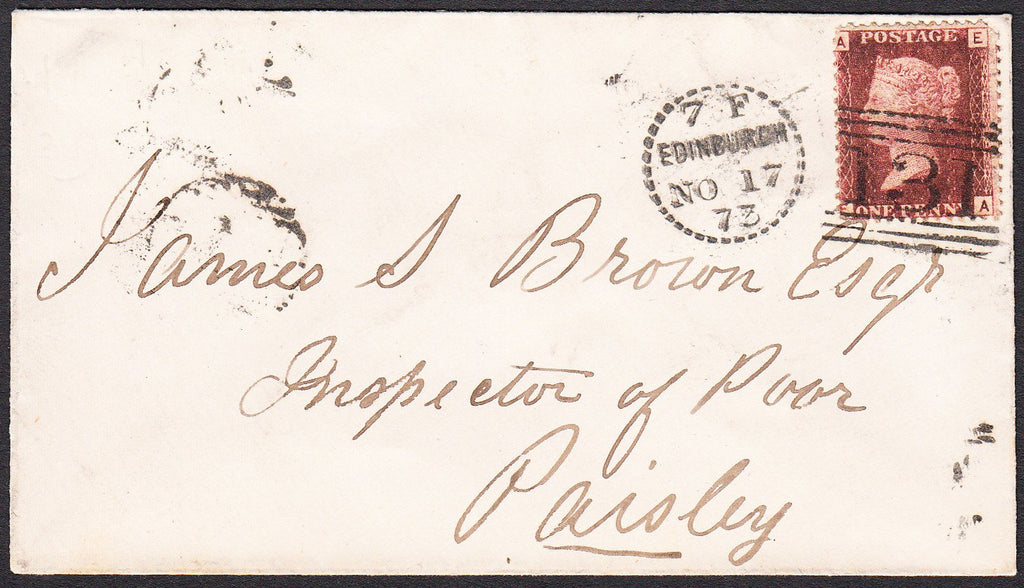 A POSTAGE E
131
ONE PENNY A
7 F
EDINBURGH
NO 17
73
James S Brown Esqr
Inspector of Poor
Paisley